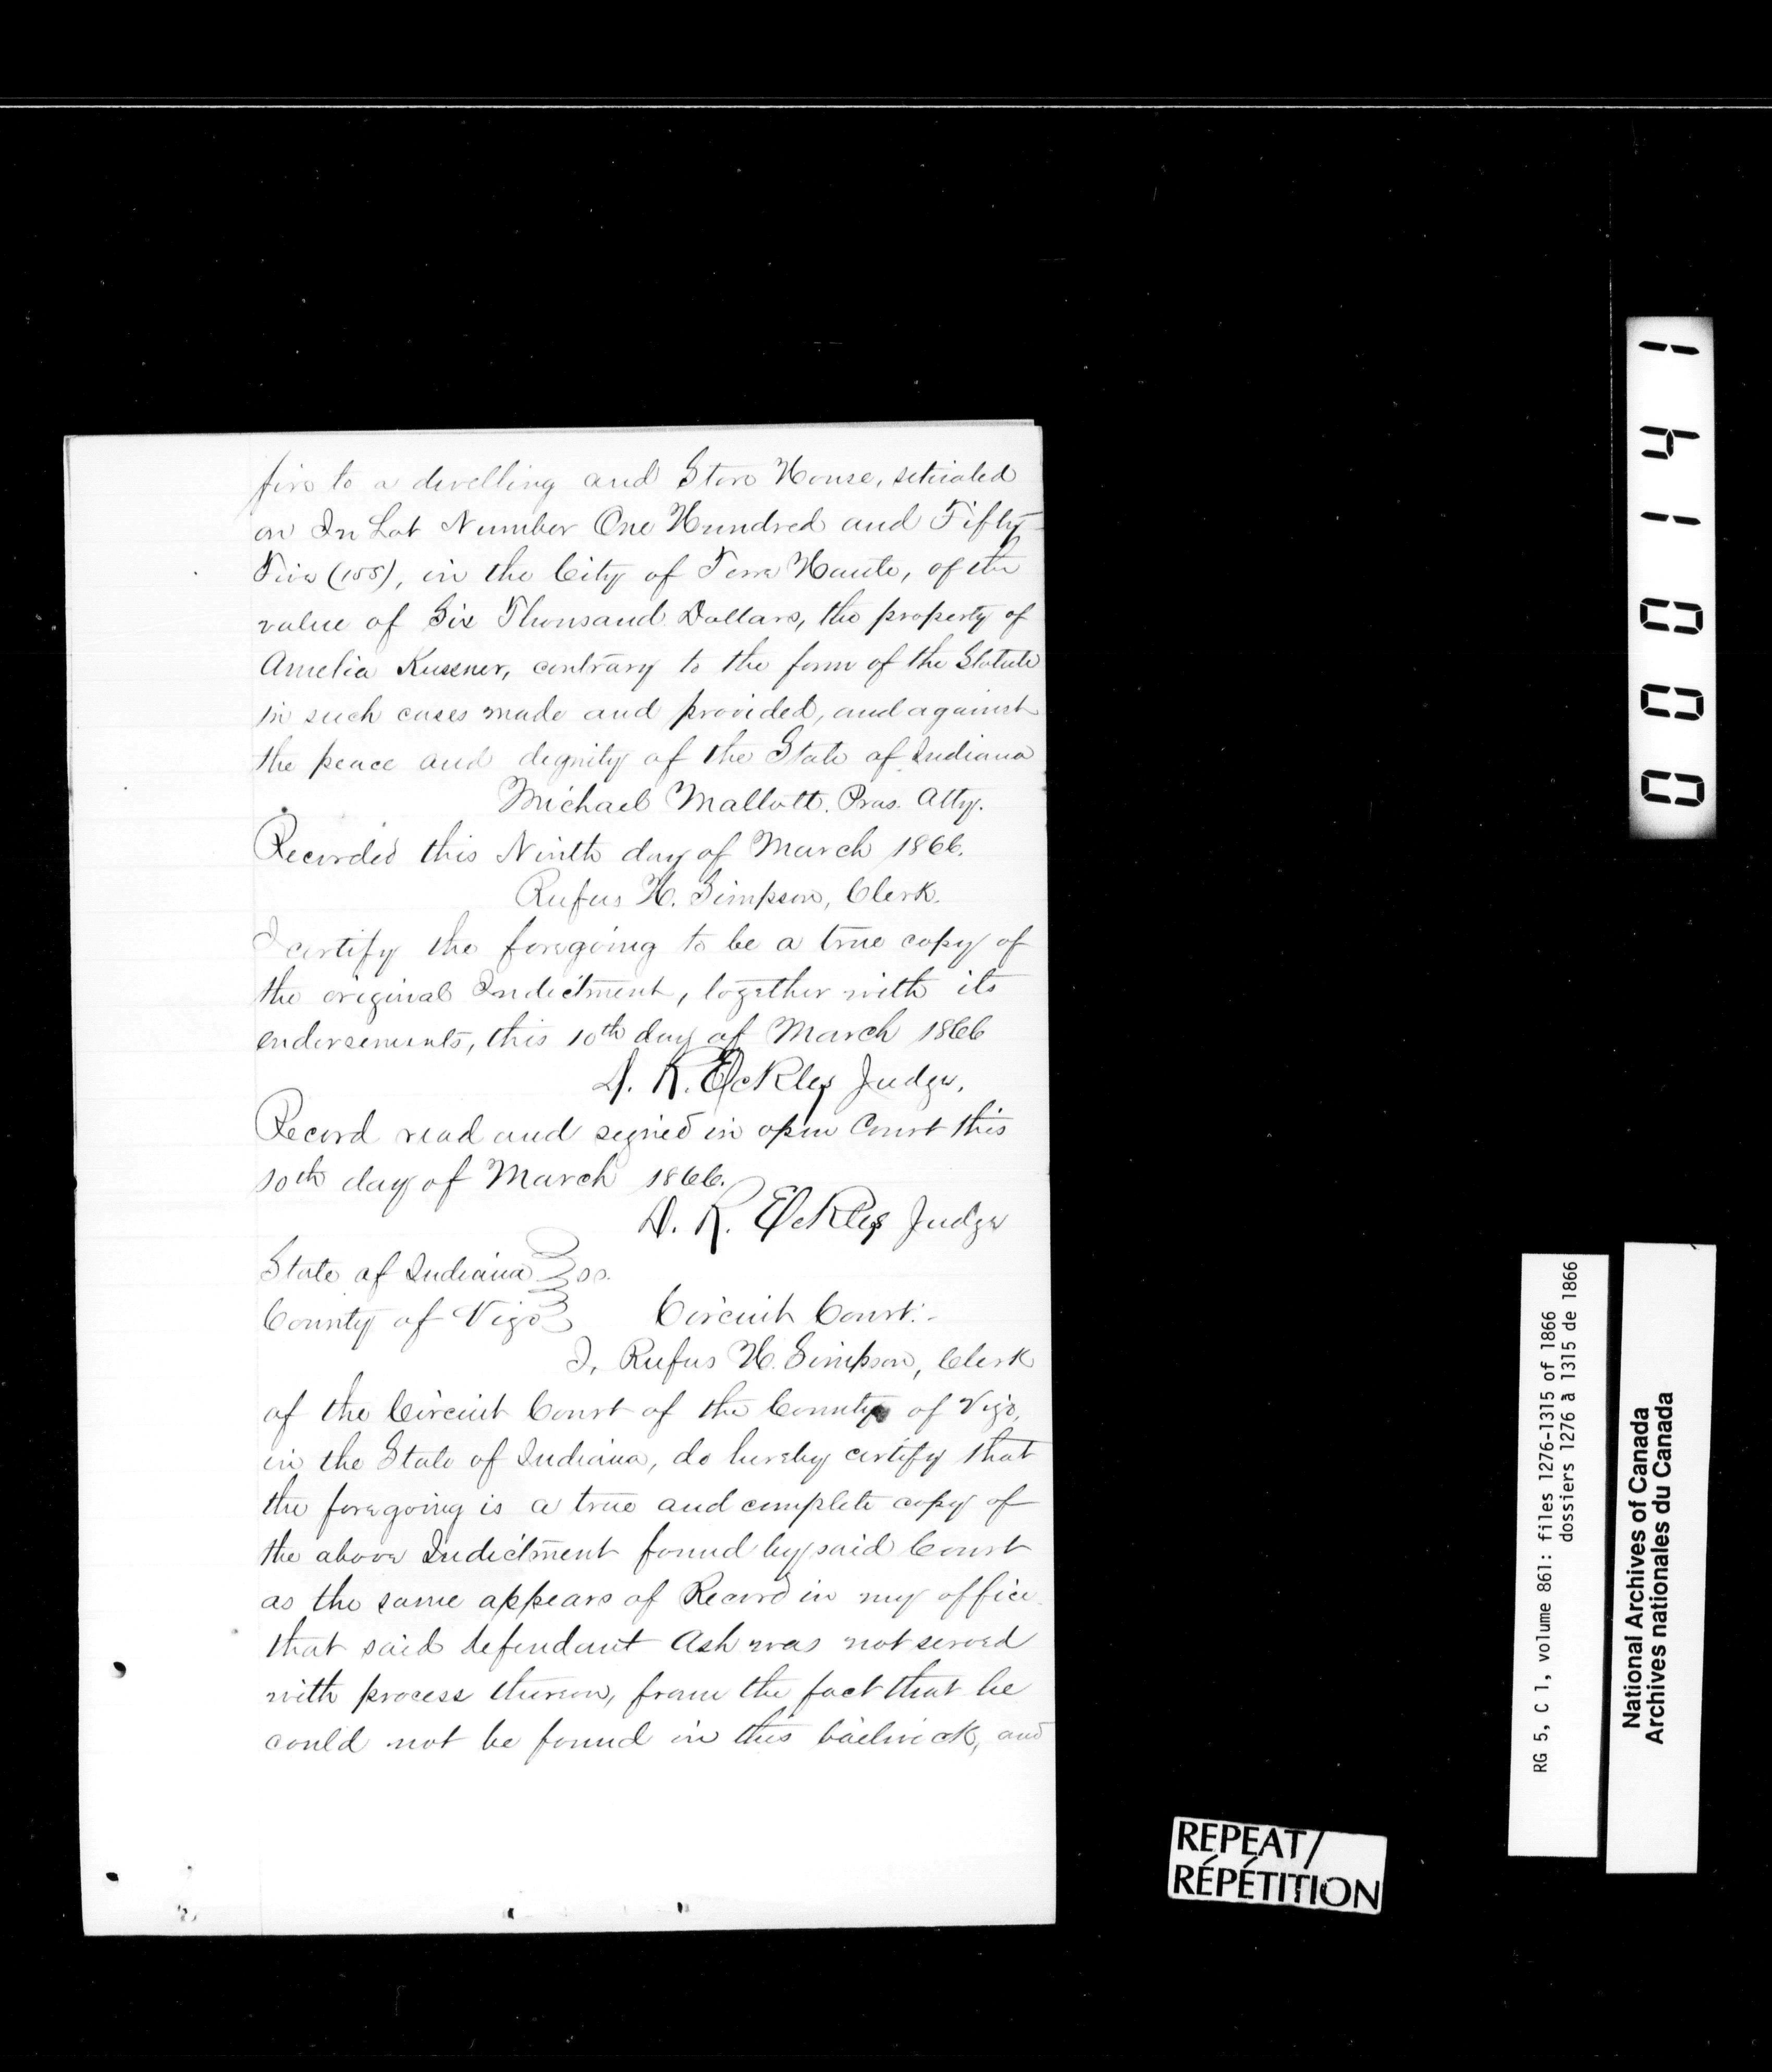 fire to a dwelling and Store House, situated
on In Lot Number One Hundred and Fifty-
Five (155), in the City of Terre Haute, of the
value of Six Thousand Dollars, the property of
Amelia Kussner, contrary to the form of the Statute
in such cases made and provided, and against
the peace and dignity of the State of Indiana
Michael Mallott. Pros. Atty.
Recorded this Ninth day of March 1866.
Rufus H. Simpson, Clerk.
I certify the foregoing to be a true copy of
the original Indictment, together with its
endorsements, this 10th day of March 1866
D. R. Eckles Judge,
Record read and signed in open Court this
10th day of March 1866.
D. R. Eckles Judge
State of Indiana } ss.
County of Vigo } Circuit Court:-
I, Rufus H. Simpson, Clerk
of the Circuit Court of the County of Vigo,
in the State of Indiana, do hereby certify that
the foregoing is a true and complete copy of
the above Indictment found by said Court
as the same appears of Record in my office.
that said defendant Ash was not served
with process thereon, from the fact that he
could not be found in this bailiwick, and
REPEAT/
RÉPÉTITION
RG 5, C 1, volume 861: files 1276-1315 of 1866
dossiers 1276 à 1315 de 1866
National Archives of Canada
Archives nationales du Canada
000141